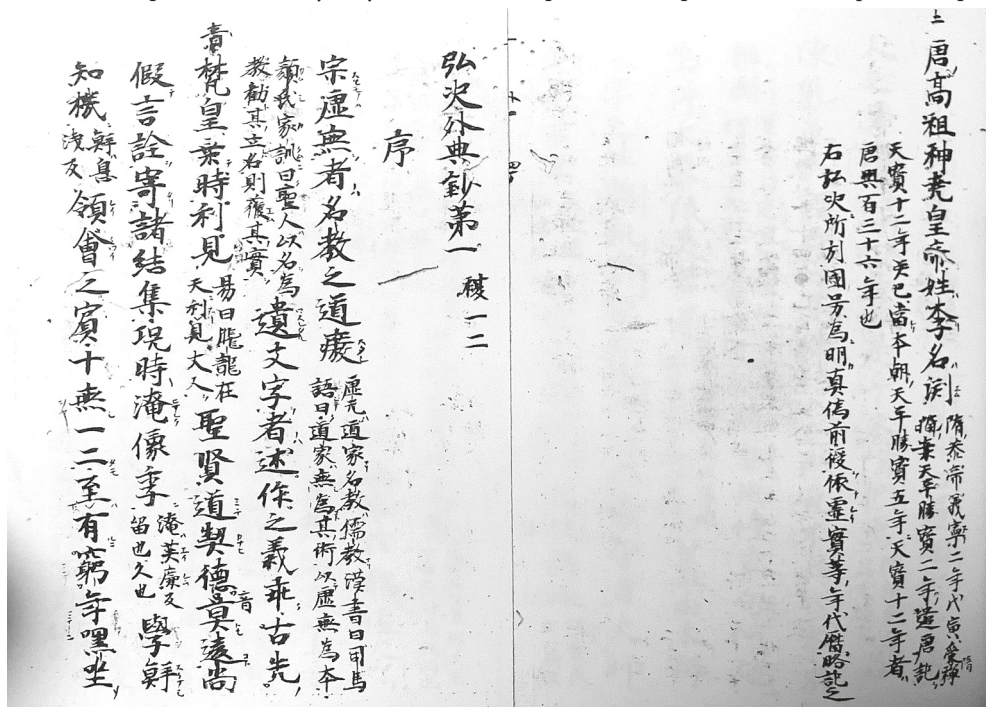 唐高祖神堯皇帝姓李名渕 隋恭帝義寧二年戊寅受禅
擿案天平勝寳二年遣唐記
天寳十二年癸巳當本朝天平勝寳五年天寳十二年者
唐興百三十六年也
右弘决所引國号為明真偽前後依虛實等年代暦略記之
弘决外典鈔第一 複一二
序
宗虛無者名教之道廢 虛无道家名教儒教漢書曰司馬
語曰道家無為其術以虛無為本
顔氏家訓曰聖人以名為
教勸其立名則獲其實 遺文字者述作之義乖古先
梵皇乗時利見 易曰飛龍在
天利見大人 聖賢道契德音遠尚
假言詮寄諸結集況時淹像季 淹英廉反
留也久也 學鮮
知機 鮮息
淺反 領會之賓十無一二至有窮年嘿坐